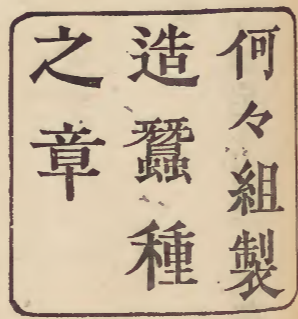 何々組製
造蠶種
之章